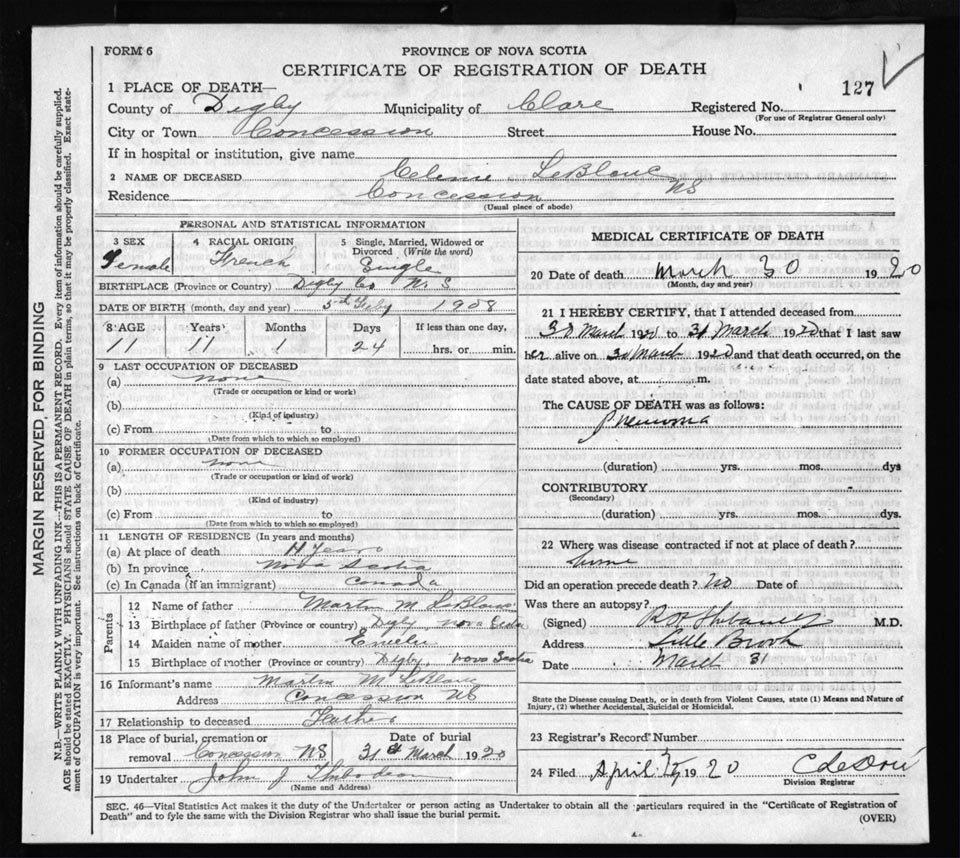 FORM 6
PROVINCE OF NOVA SCOTIA
CERTIFICATE OF REGISTRATION OF DEATH
127
1 PLACE OF DEATH—
County of Digby Municipality of Clare Registered No.
(For use of Registrar General only)
City or Town Concession Street House No.
If in hospital or institution, give name
2 NAME OF DECEASED LeBlanc
Residence Concession NS
(Usual place of abode)
PERSONAL AND STATISTICAL INFORMATION
3 SEX Female
4 RACIAL ORIGIN French
5 Single, Married, Widowed or Divorced (Write the word) Single
BIRTHPLACE (Province or Country) Digby Co N.S
DATE OF BIRTH (month, day and year) 5th Feby 1908
8 AGE Years Months Days If less than one day,
11 11 1 24 hrs. or min.
9 LAST OCCUPATION OF DECEASED
(a) none
(Trade or occupation or kind or work)
(b)
(Kind of industry)
(c) From to
(Date from which to which so employed)
10 FORMER OCCUPATION OF DECEASED
(a) none
(Trade or occupation or kind of work)
(b)
(Kind of industry)
(c) From to
(Date from which to which so employed)
11 LENGTH OF RESIDENCE (In years and months)
(a) At place of death 11 Years
(b) In province Nova Scotia
(c) In Canada (if an immigrant) Canada
Parents
12 Name of father Martin M LeBlanc
13 Birthplace of father (Province or country) Digby Nova Scotia
14 Maiden name of mother
15 Birthplace of mother (Province or country) Digby, Nova Scotia
16 Informant's name Martin M LeBlanc
Address Concession NS
17 Relationship to deceased Father
18 Place of burial, cremation or removal Concession NS
Date of burial 31st March 1920
19 Undertaker John J Thibodeau
(Name and Address)
MEDICAL CERTIFICATE OF DEATH
20 Date of death March 30 1920
(Month, day and year)
21 I HEREBY CERTIFY, that I attended deceased from
30 March 1920 to 31 March 1920 that I last saw
her alive on 30 March 1920 and that death occurred, on the
date stated above, at m.
The CAUSE OF DEATH was as follows:
Pneumonia
(duration) yrs. mos. dys
CONTRIBUTORY
(Secondary)
(duration) yrs. mos. dys.
22 Where was disease contracted if not at place of death?
Home
Did an operation precede death? No Date of
Was there an autopsy?
(Signed) M.D.
Address Little Brook
Date March 31
State the Disease causing Death, or in death from Violent Causes, state (1) Means and Nature of Injury, (2) whether Accidental, Suicidal or Homicidal.
23 Registrar's Record Number
24 Filed April 1920
Division Registrar
SEC. 46—Vital Statistics Act makes it the duty of the Undertaker or person acting as Undertaker to obtain all the particulars required in the "Certificate of Registration of
Death" and to fyle the same with the Division Registrar who shall issue the burial permit.
(OVER)
MARGIN RESERVED FOR BINDING
N.B.—WRITE PLAINLY WITH UNFADING INK—THIS IS A PERMANENT RECORD. Every item of information should be carefully supplied.
AGE should be stated EXACTLY. PHYSICIANS should STATE CAUSE OF DEATH in plain terms, so that it may be properly classified. Exact state-
ment of OCCUPATION is very important. See instructions on back of Certificate.